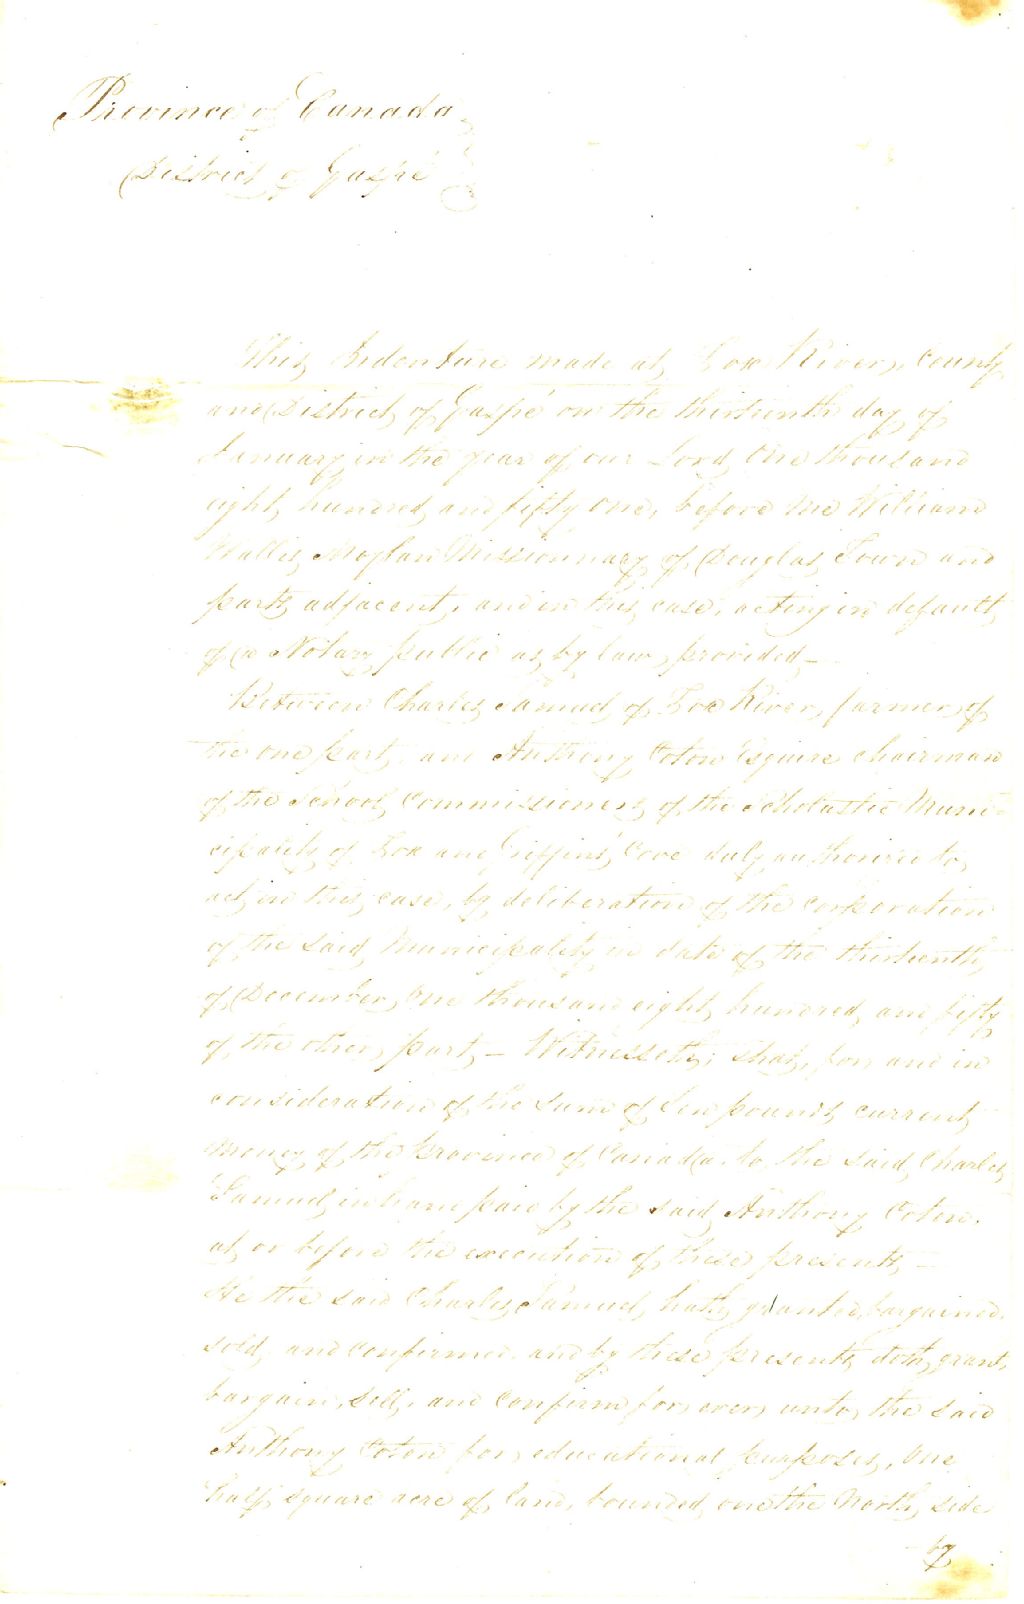 Province of Canada
District of Gaspé
This Indenture made at Fox River, County
and District of Gaspé on the thirteenth day of
January in the year of our Lord One thousand
eight hundred and fifty one, before me William
Wallis Moylan Missionnary of Douglas Town and
parts adjacent, and in this case, acting in default
of a Notary public as by law provided —
Between Charles Samuel of Fox River, farmer, of
the one part, and Anthony Coton Esquire Chairman
of the School Commissioners of the Scholastic Muni-
cipality of Fox and Griffin's Cove duly authorized to
act in this case, by deliberation of the corporation
of the said Municipality in date of the thirteenth
of December, One thousand eight hundred and fifty
of the other part — Witnesseth; that, for and in
consideration of the sum of Ten pounds current
money of the Province of Canada, to the said Charles
Samuel in hand paid by the said Anthony Coton,
at or before the execution of these presents —
He the said Charles Samuel, hath granted, bargained,
sold, and confirmed, and by these presents doth, grant,
bargain, sell, and confirm for ever, unto the said
Anthony Coton for educational purposes, One
half square acre of land, bounded one the North side
by